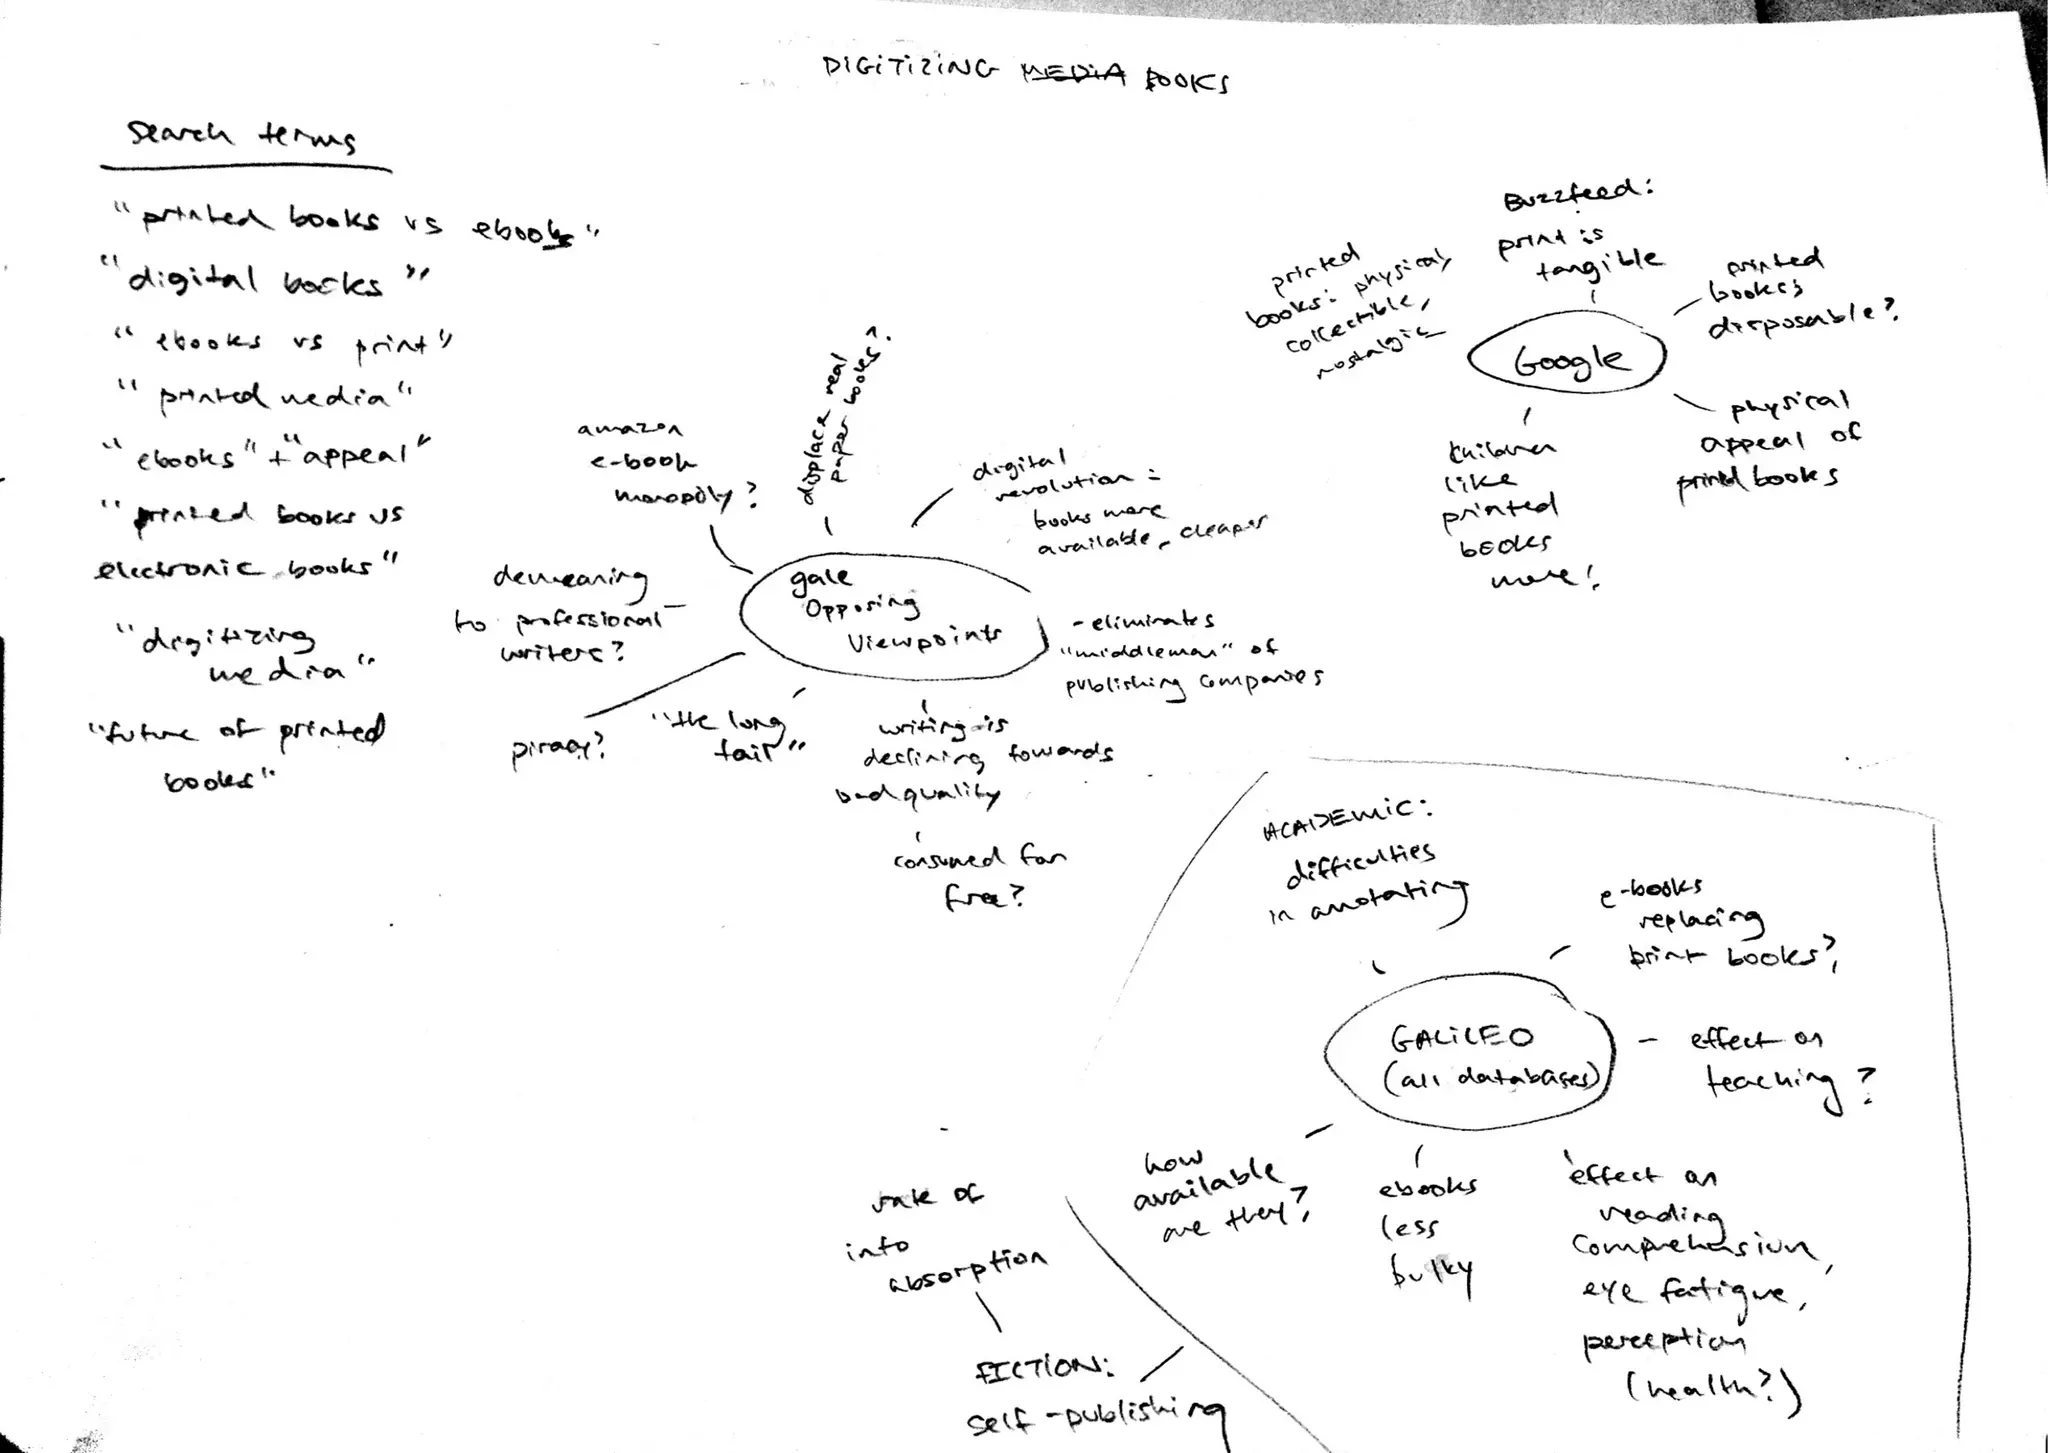 DIGITIZING MEDIA BOOKS
Search terms
"printed books vs ebooks"
"digital books"
"ebooks vs print"
"printed media"
"ebooks" + "appeal"
"printed books vs
electronic books"
"digitizing
media"
"future of printed
books"
amazon
e-book
monopoly?
displace real
paper books?
digital
revolution =
books more
available, cheaper
gale
Opposing
Viewpoints
demeaning
to professional
writers?
- eliminates
"middleman" of
publishing companies
piracy?
"the long
tail"
writing is
declining towards
bad quality
consumed for
free?
Buzzfeed:
print is
tangible
printed
books: physical,
collectible,
nostalgic
printed
books
disposable?
Google
physical
appeal of
printed books
children
like
printed
books
more!
ACADEMIC:
difficulties
in annotating
e-books
replacing
print books?
GALILEO
(all databases)
- effect on
teaching?
how
available
are they?
ebooks
less
bulky
effect on
reading
comprehension,
eye fatigue,
perception
(health?)
rate of
info
absorption
FICTION:
self-publishing